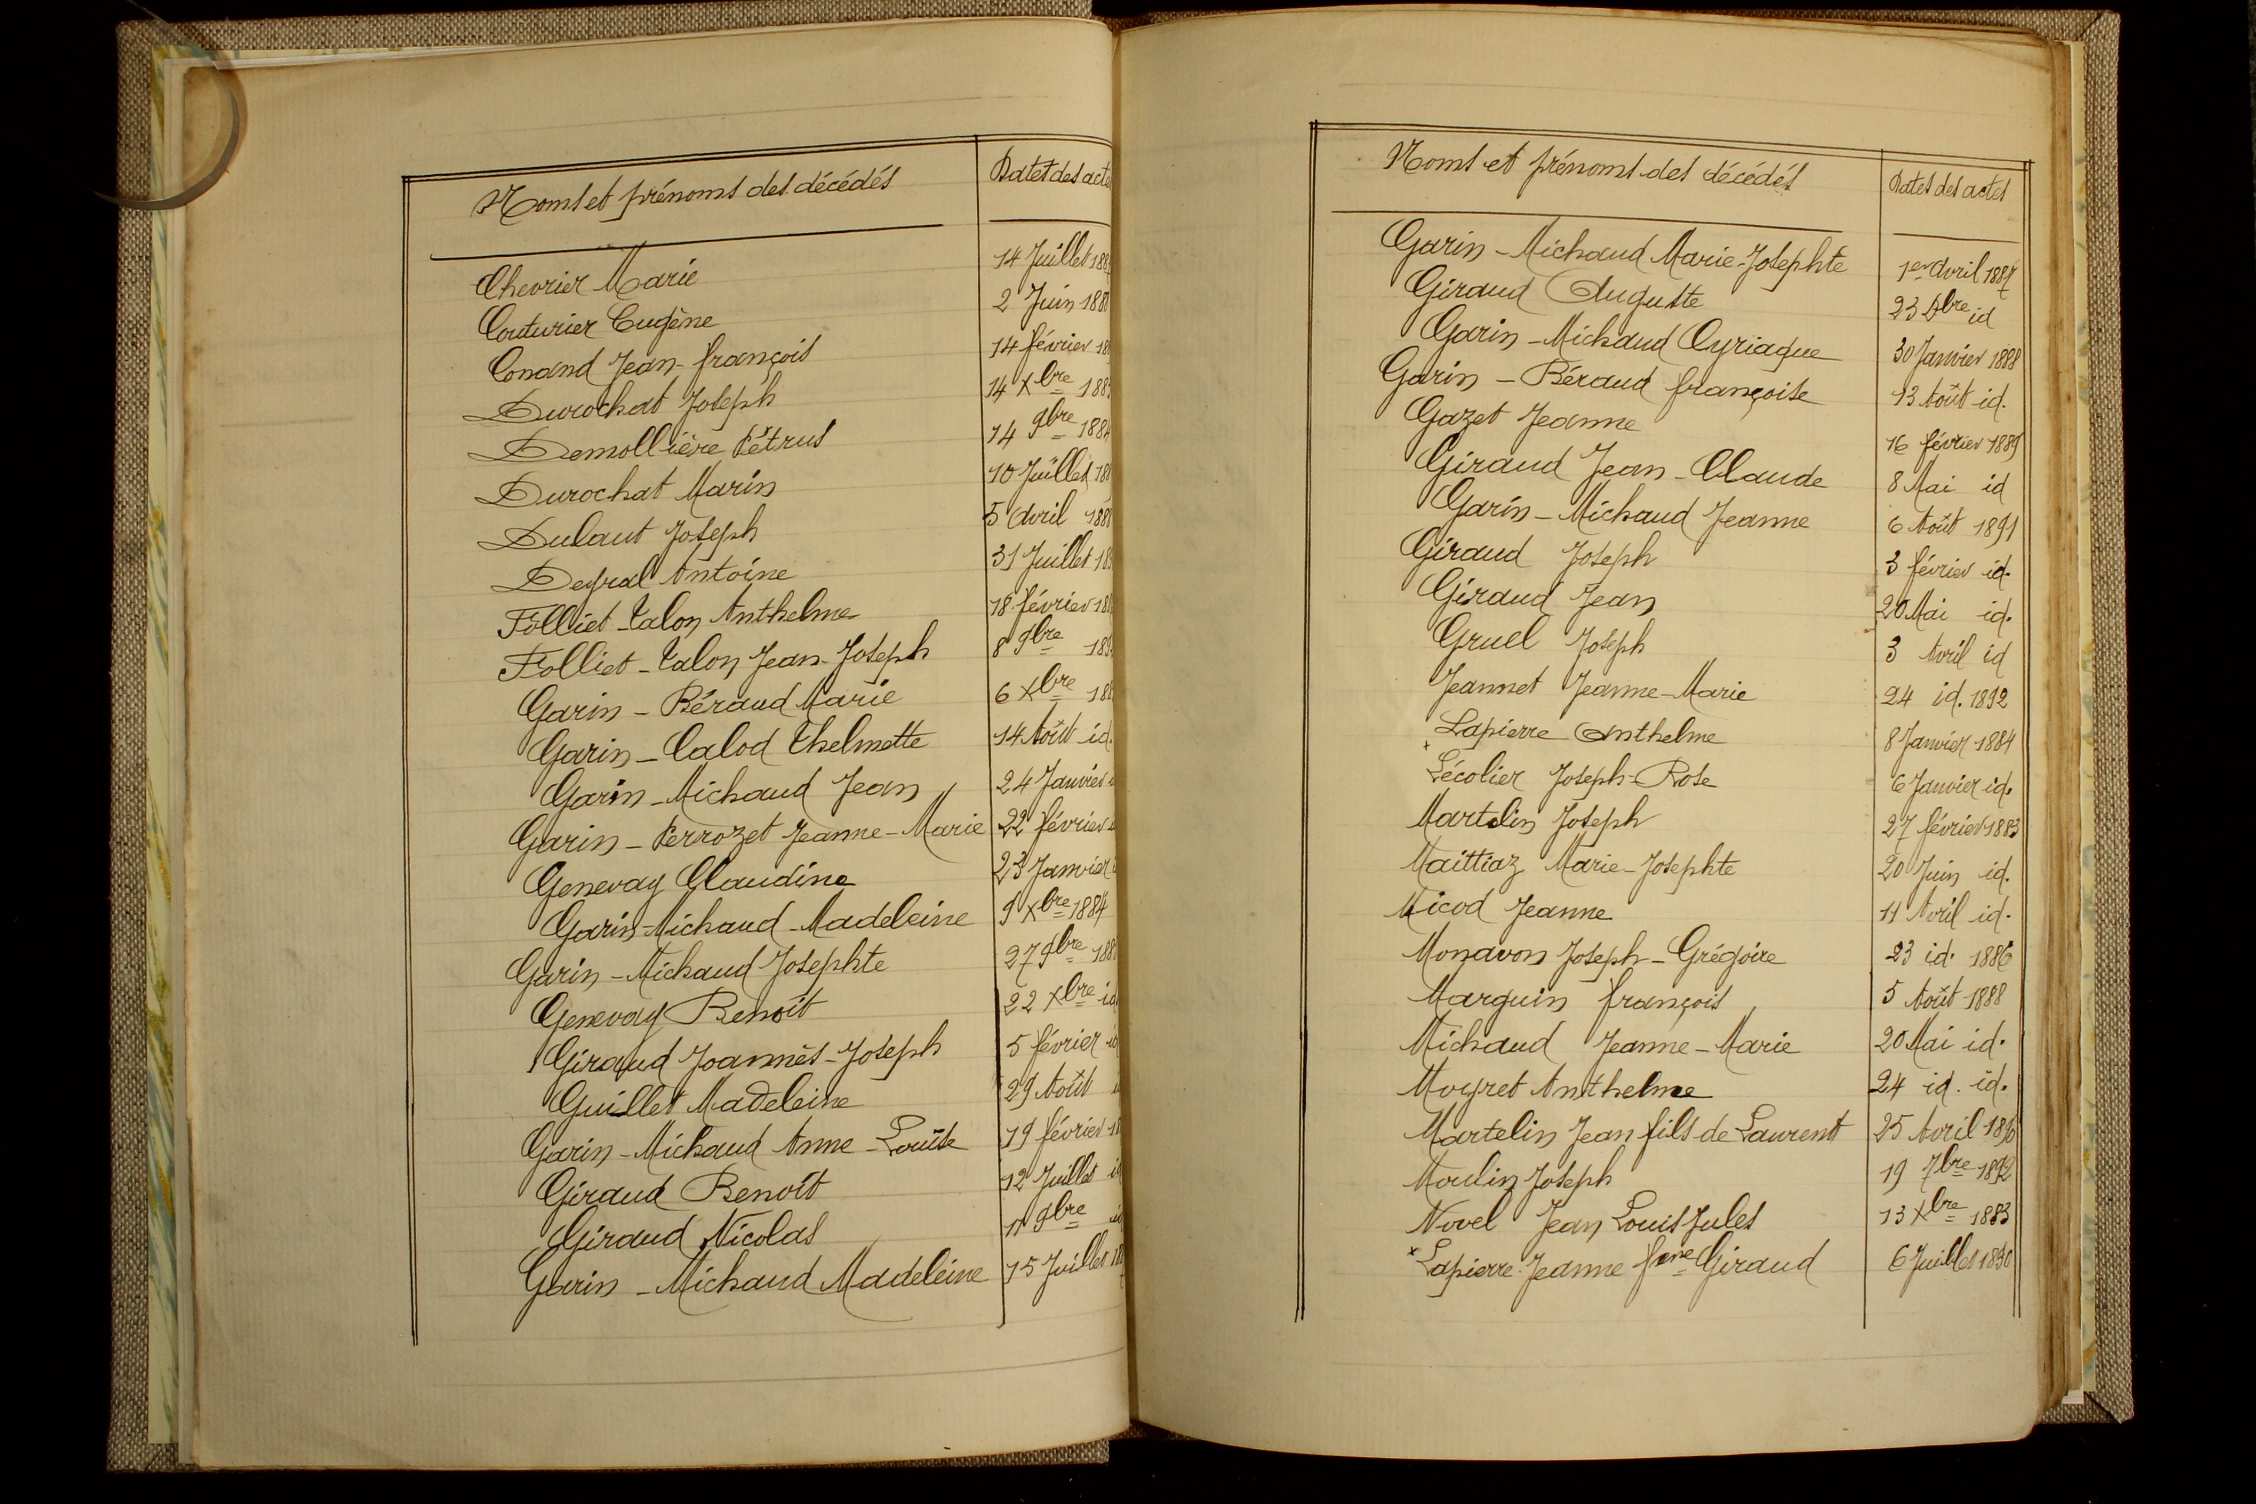 Noms et prénoms des décédés Dates des actes
Chevrier Marie 14 Juillet 188
Couturier Eugène 2 Juin 188
Conand Jean-françois 14 février 18
Durochat Joseph 14 Xbre 188
Demollière Pétrus 14 9bre 1884
Durochat Marin 10 Juillet 188
Dulaut Joseph 5 Avril 188
Deyral Antoine 31 Juillet 18
Folliet-Talon Anthelme 18 février 18
Folliet-Talon Jean-Joseph 8 9bre 189
Garin-Béraud Marie 6 Xbre 188
Garin-Calod Thelmette 14 Août id.
Garin-Michaud Jean 24 Janvier
Garin-Perrozet Jeanne-Marie 22 février
Genevay Claudine 23 Janvier
Garin-Michaud Madeleine 9 Xbre 1884
Garin-Michaud Josephte 27 9bre 188
Genevay Benoît 22 Xbre id
Giraud Joannès-Joseph 5 février id
Guillet Madeleine 29 Août
Garin-Michaud Anne-Louise 19 février 18
Giraud Benoît 12 Juillet id
Giraud Nicolas 11 9bre id
Garin-Michaud Madeleine 15 Juillet 18
Noms et prénoms des décédés Dates des actes
Garin-Michaud Marie-Josephte 1er Avril 1887
Giraud Auguste 23 bre id
Garin-Michaud Cyriaque 30 Janvier 1888
Garin-Béraud françoise 13 Août id.
Gazet Jeanne 16 février 1889
Giraud Jean-Claude 8 Mai id
Garin-Michaud Jeanne 6 Août 1891
Giraud Joseph 3 février id.
Giraud Jean 20 Mai id.
Gruel Joseph 3 Avril id
Jeannet Jeanne-Marie 24 id. 1892
Lapierre Anthelme 8 Janvier 1884
x Lécolier Joseph-Rose 6 Janvier id.
Martelin Joseph 27 février 1883
Maittiaz Marie-Josephte 20 Juin id.
Micod Jeanne 11 Avril id.
Monavon Joseph-Grégoire 23 id. 1886
Marguin françois 5 Août 1888
Michaud Jeanne-Marie 20 Mai id.
Moyret Anthelme 24 id. id.
Martelin Jean fils de Laurent 25 Avril 1890
Moulin Joseph 19 7bre 1892
Novel Jean Louis Jules 13 Xbre 1883
x Lapierre Jeanne fme Giraud 6 Juillet 1890